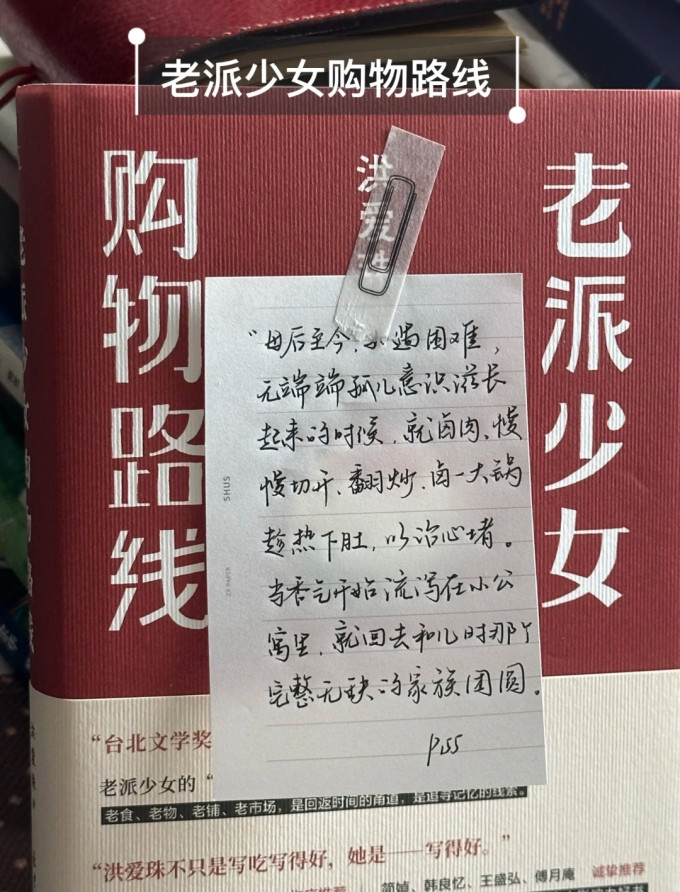 老派少女购物路线
老派少女
洪爱珠
购物路线
"母后至今,偶遇困难,
无端端孤儿意识滋长
起来的时候,就卤肉、慢
慢切开、翻炒、卤一大锅
趁热下肚,以治心堵。
当香气开始流泻在小公
寓里,就回去和儿时那个
完整无缺的家族团圆。
P155
SHUS
"台北文学奖
老派少女的"
老食、老物、老铺、老市场,是回返时间的甬道,是追寻记忆的线索。
"洪爱珠不只是写吃写得好,她是——写得好。"
简媜、韩良忆、王盛弘、傅月庵 诚挚推荐